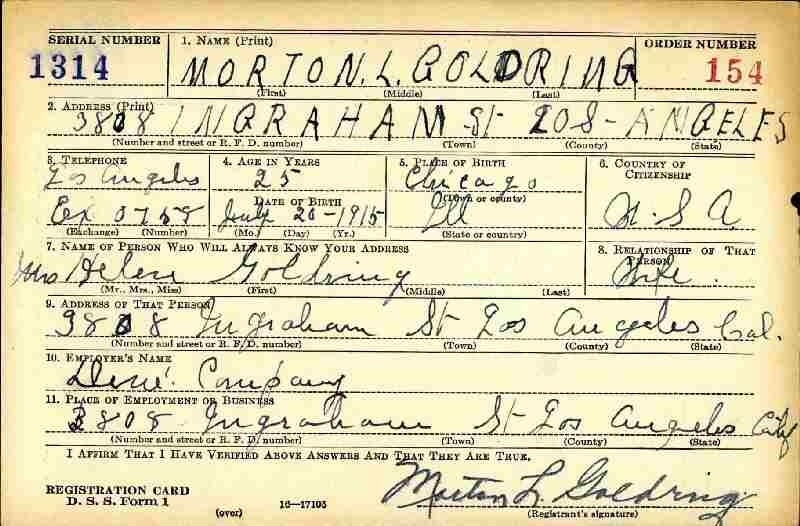 SERIAL NUMBER 1. NAME (Print) ORDER NUMBER
1314 MORTON. L. GOLDRING 154
(First) (Middle) (Last)
2. ADDRESS (Print)
3808 INGRAHAM St LOS-ANGELES
(Number and street or R. F. D. number) (Town) (County) (State)
3. TELEPHONE 4. AGE IN YEARS 5. PLACE OF BIRTH 6. COUNTRY OF CITIZENSHIP
Los Angeles 25 Chicago
(Town or county)
DATE OF BIRTH
Ex 0758 July 20-1915 Ill U. S. A.
(Exchange) (Number) (Mo.) (Day) (Yr.) (State or country)
7. NAME OF PERSON WHO WILL ALWAYS KNOW YOUR ADDRESS 8. RELATIONSHIP OF THAT PERSON
Mrs Helen Goldring Wife.
(Mr., Mrs., Miss) (First) (Middle) (Last)
9. ADDRESS OF THAT PERSON
3808 Ingraham St Los Angeles Cal.
(Number and street or R. F. D. number) (Town) (County) (State)
10. EMPLOYER'S NAME
Company
11. PLACE OF EMPLOYMENT OR BUSINESS
3808 Ingraham St Los Angeles City
(Number and street or R. F. D. number) (Town) (County) (State)
I AFFIRM THAT I HAVE VERIFIED ABOVE ANSWERS AND THAT THEY ARE TRUE.
REGISTRATION CARD Morton L. Goldring
D. S. S. Form 1 (over) 16-17105 (Registrant's signature)